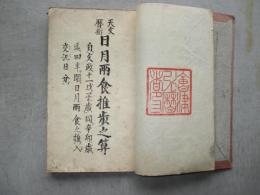 天文
暦術
日月両食推歩之算
自文政十一戊子歳同辛卯歳
迄四年間日月両食之推入
交汎日